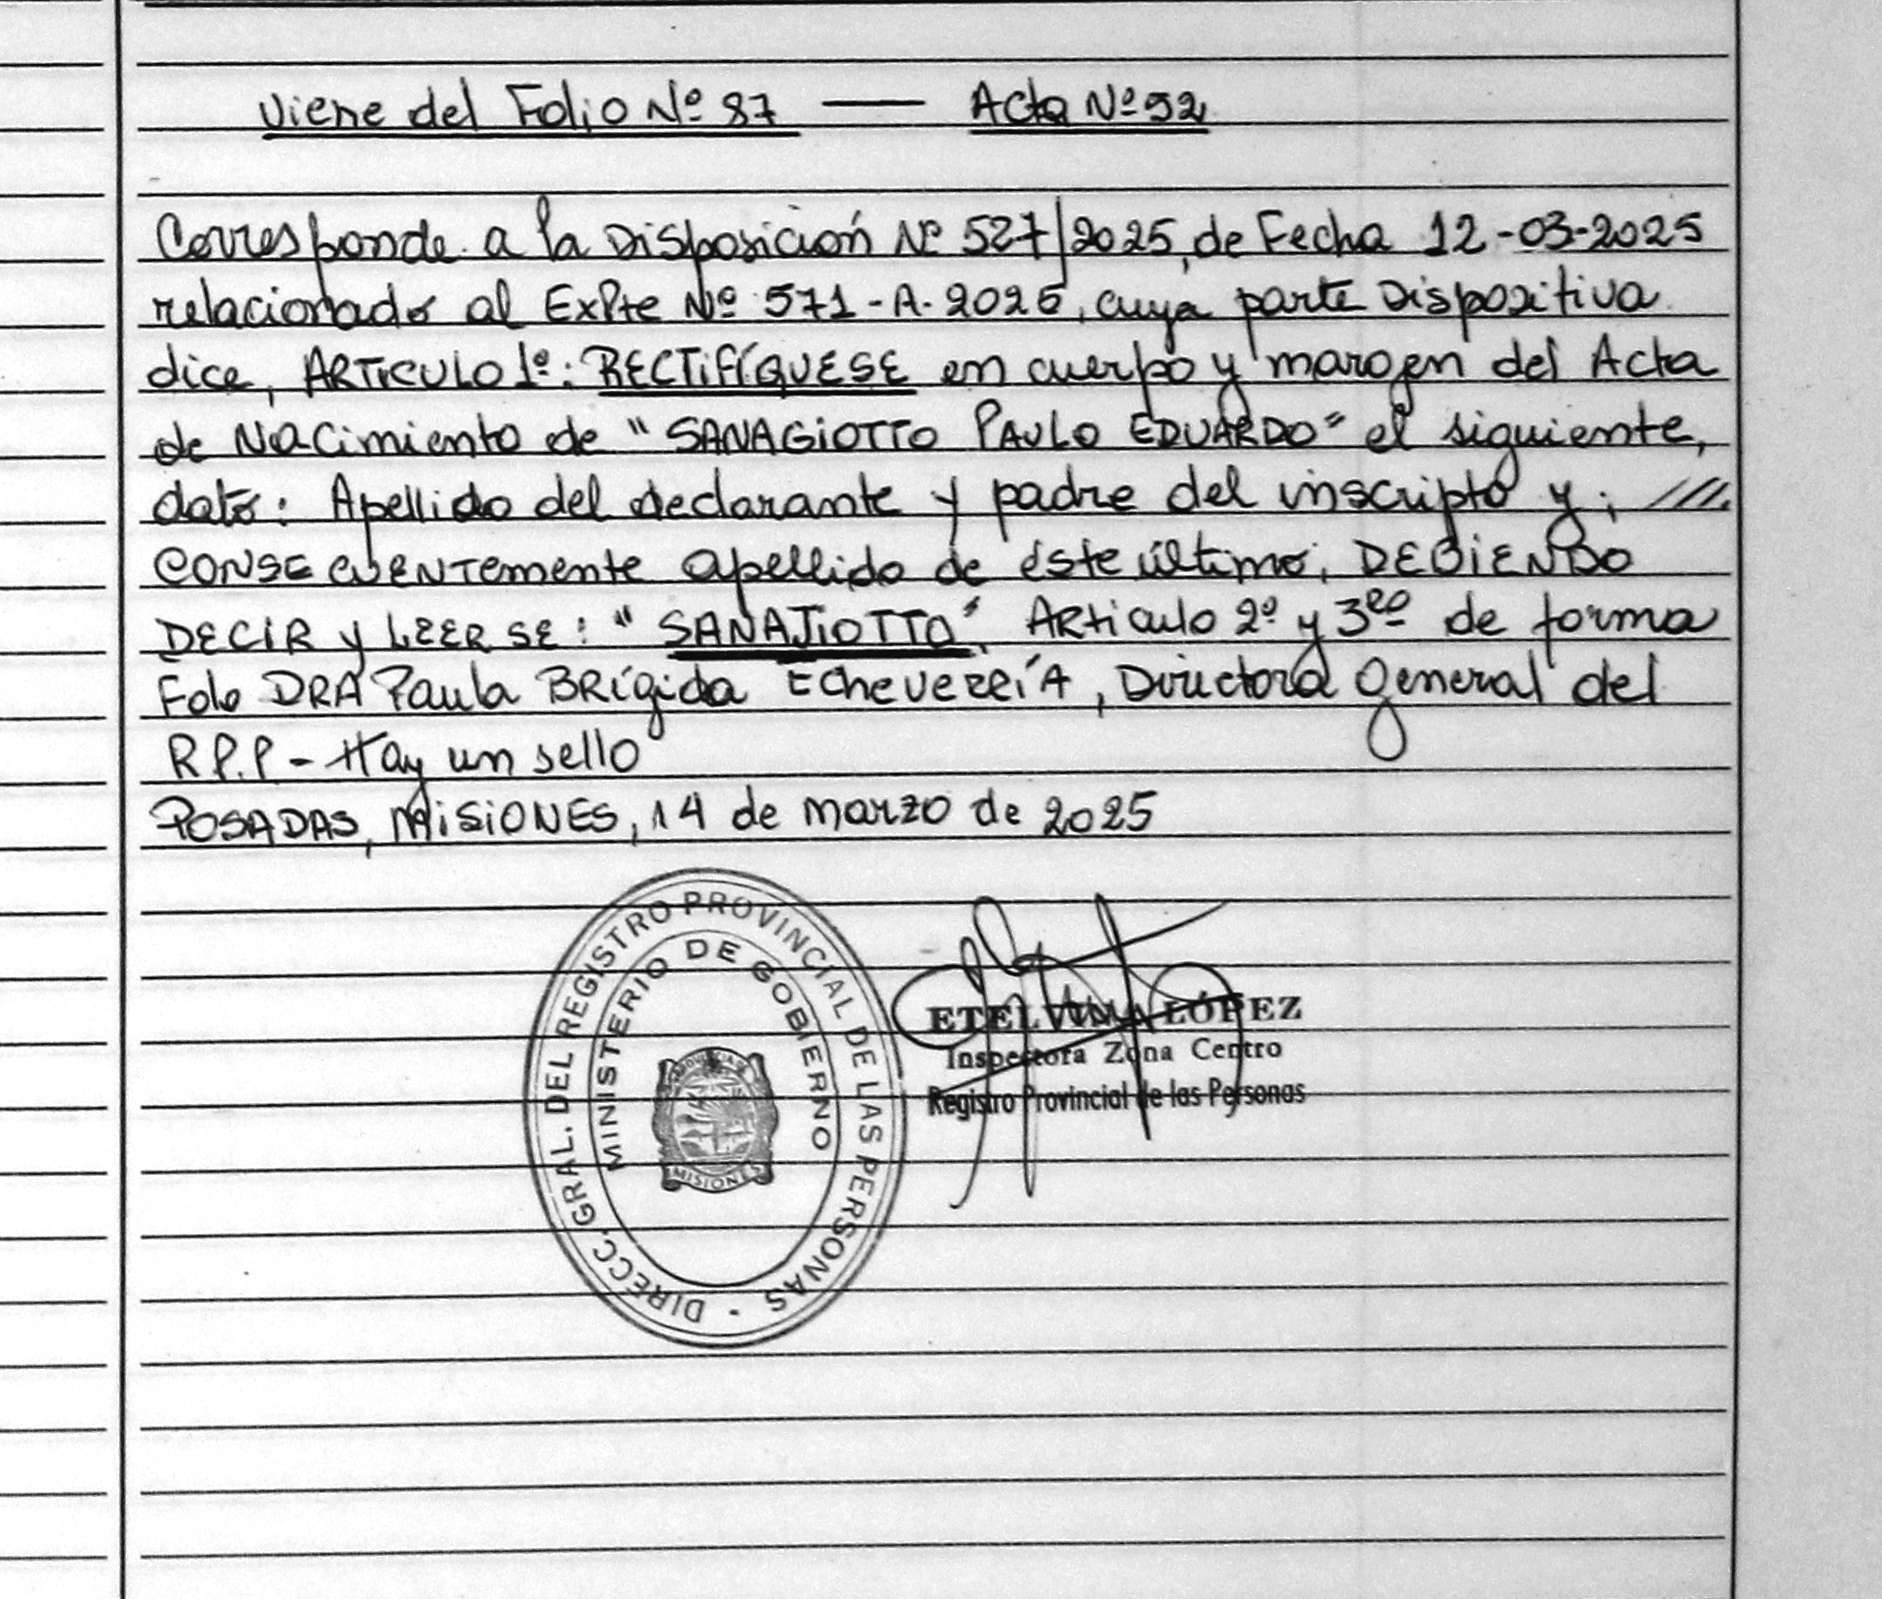 Viene del Folio Nº 87 —— Acta Nº 92
Corresponde a la Disposición Nº 527/2025, de Fecha 12-03-2025
relacionado al ExPte Nº 571-A-2025, cuya parte Dispositiva
dice, ARTICULO 1º: RECTIFÍQUESE en cuerpo y margen del Acta
de Nacimiento de "SANAGIOTTO PAULO EDUARDO" el siguiente,
dato: Apellido del declarante y padre del inscripto y; ///.
CONSECUENTemente apellido de éste último, DEBIENDO
DECIR y LEERSE: "SANAJIOTTO". Articulo 2º y 3ro de forma
Fdo DRA Paula BRígida EcheverríA, Directora General del
R.P.P - Hay un sello
POSADAS, MISIONES, 14 de marzo de 2025
DIRECC. GRAL. DEL REGISTRO PROVINCIAL DE LAS PERSONAS -
MINISTERIO DE GOBIERNO
MISIONES
ETELVINA LÓPEZ
Inspectora Zona Centro
Registro Provincial de las Personas